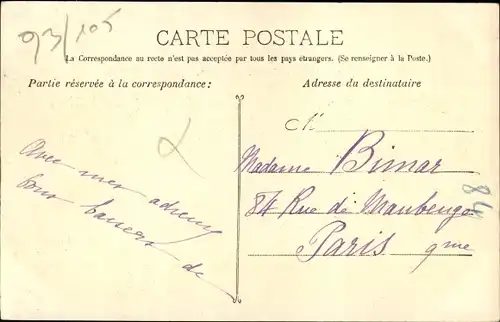 93/105
CARTE POSTALE
La Correspondance au recto n'est pas acceptée par tous les pays étrangers. (Se renseigner à la Poste.)
Partie réservée à la correspondance:
Adresse du destinataire
Avec mes
bons baisers de
Madame Bimar
84 Rue de Maubeuge
Paris 9me
84